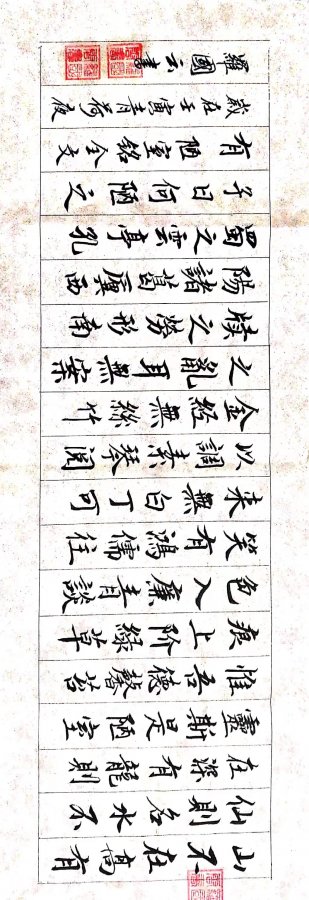 山不在高有
仙則名水不
在深有龍則
靈斯是陋室
惟吾德馨苔
痕上阶綠草
色入簾青談
笑有鴻儒往
來無白丁可
以調素琴閱
金經無絲竹
之亂耳無案
牘之勞形南
陽諸葛廬西
蜀之雲亭孔
子曰何陋之
有陋室銘全文
歲在壬寅
羅國書